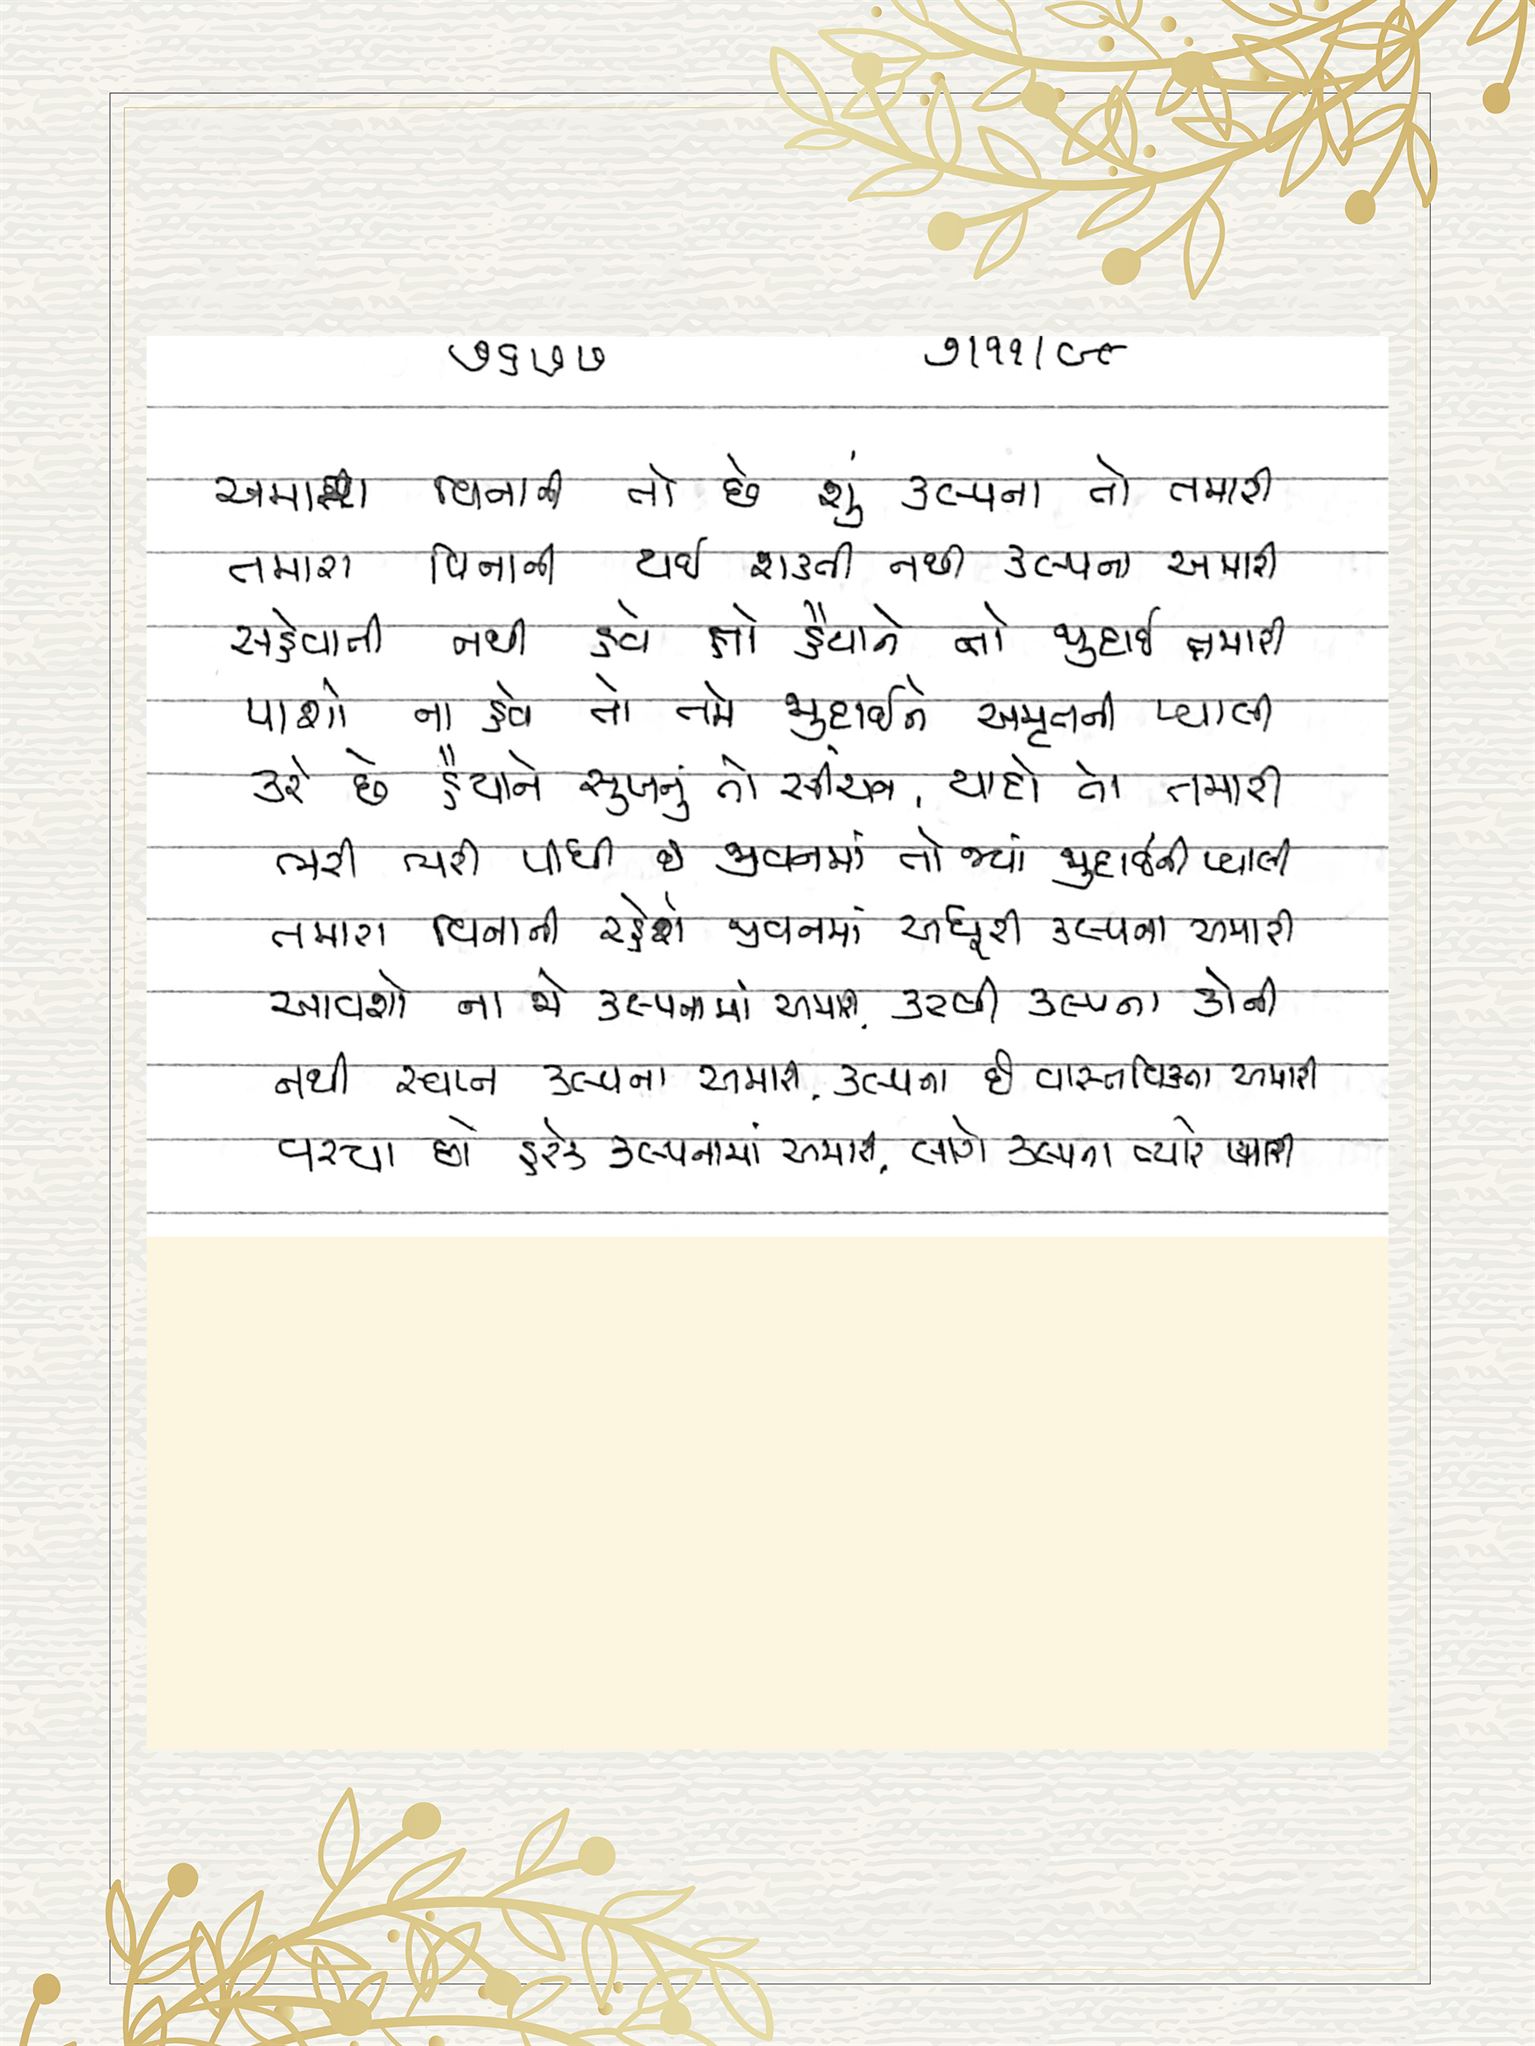 ૭૬૭૭ ૭/૧૧/૯૯
અમારા વિનાની તો છે શું કલ્પના તો તમારી
તમારા વિનાની થઈ શકતી નથી કલ્પના અમારી
સહેવાતી નથી હવે તો હૈયાને તો જુદાઈ તમારી
પાશો ના હવે તો તમે જુદાઈને અમૃતની પ્યાલી
કરે છે હૈયાને સુખનું તો સીંચન, યાદો તો તમારી
ભરી ભરી પીધી છે જીવનમાં તો જ્યાં જુદાઈની પ્યાલી
તમારા વિનાની રહેશે જીવનમાં અધૂરી કલ્પના અમારી
આવશો ના જો કલ્પનામાં અમારી, કરવી કલ્પના કોની
નથી સ્વપ્ન કલ્પના અમારી, કલ્પના છે વાસ્તવિકતા અમારી
વસ્યા છો હરેક કલ્પનામાં અમારી, લાગે કલ્પના ત્યારે પ્યારી